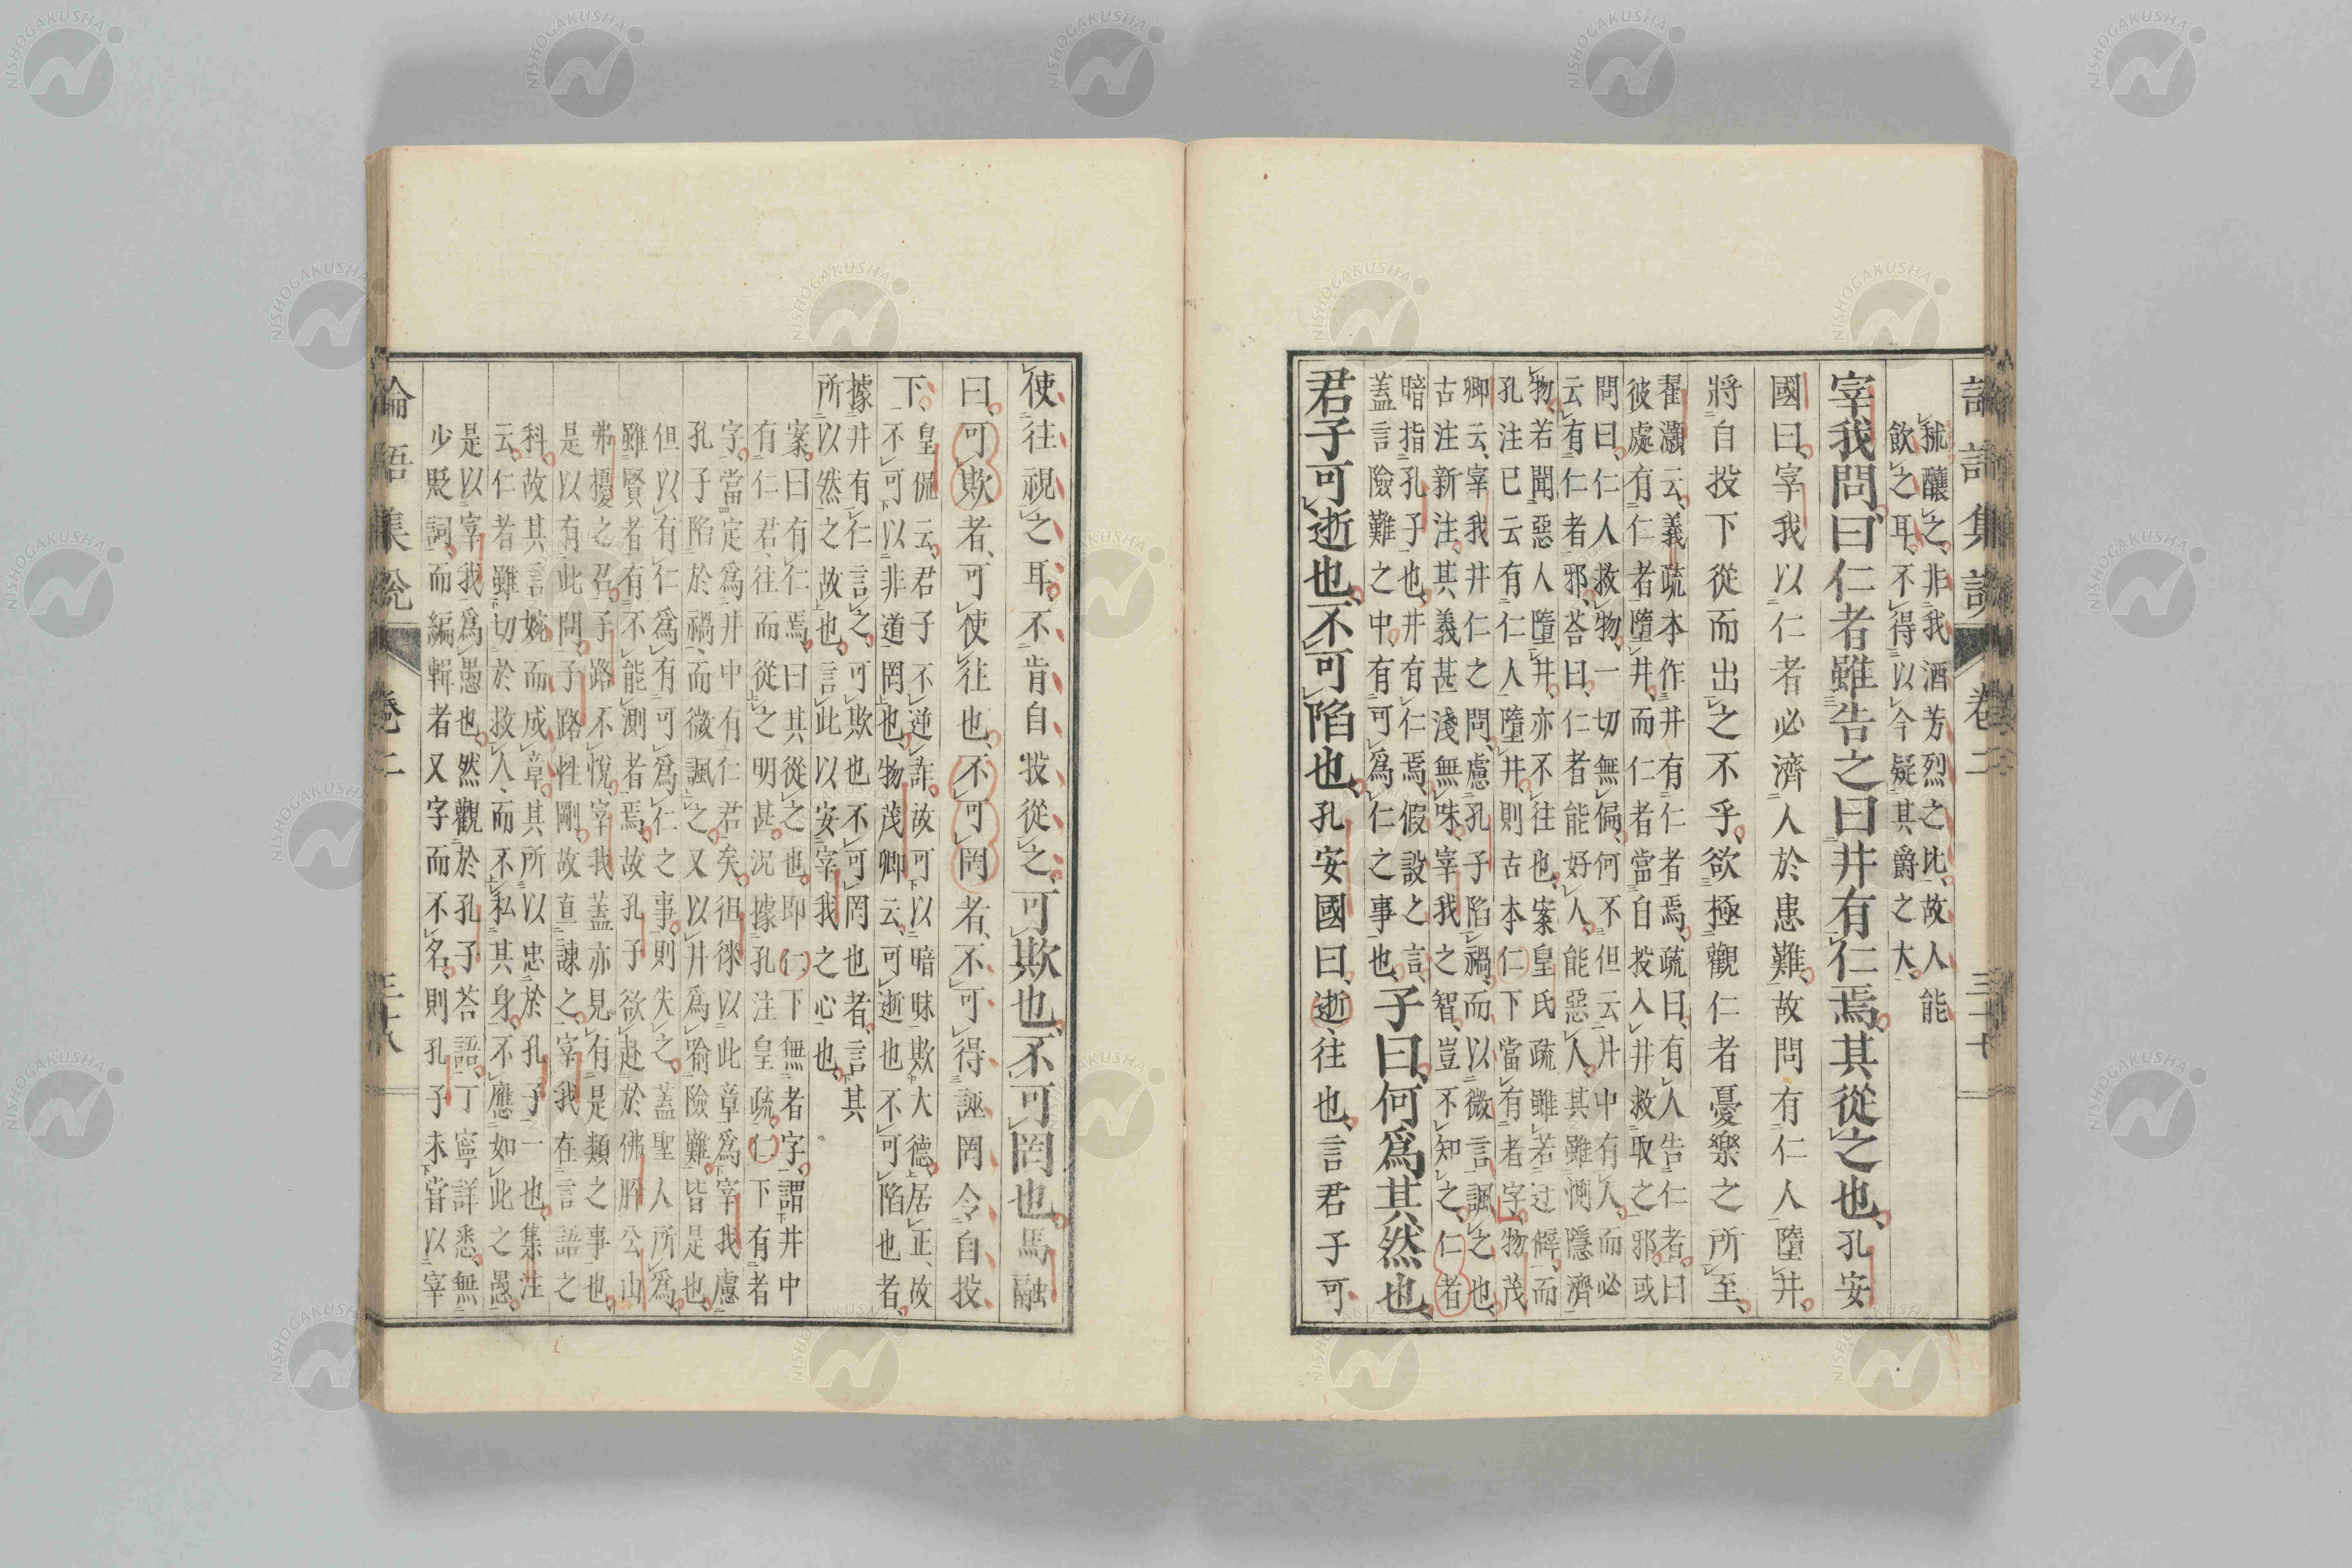 論語集說 卷二 三十七
秫釀之、非我酒芳烈之比、故人能
飲之耳、不得以今疑其爵之大、
宰我問曰、仁者雖告之曰井有仁焉、其從之也、孔安
國曰、宰我以仁者必濟人於患難、故問有仁人墮井、
將自投下從而出之不乎、欲極觀仁者憂樂之所至、
翟灝云、義疏本作井有仁者焉、疏曰、有人告仁者曰
彼處有仁者墮井、而仁者當自投入井救取之邪、或
問曰、仁人救物、一切無偏、何不但云井中有人、而必
云有仁者邪、荅曰、仁者能好人、能惡人、其雖惻隱濟
物、若聞惡人墮井、亦不往也、案皇氏疏雖若迂解、而
孔注已云有仁人墮井、則古本仁下當有者字、物茂
卿云、宰我井仁之問、慮孔子陷禍、而以微言諷之也、
古注新注、其義甚淺無味、宰我之智、豈不知之、仁者
暗指孔子也、井有仁焉、假設之言、
蓋言險難之中、有可爲仁之事也、
子曰、何爲其然也、
君子可逝也、不可陷也、孔安國曰、逝、往也、言君子可
使往視之耳、不肯自投從之、可欺也、不可罔也、馬融
曰、可欺者、可使往也、不可罔者、不可得誣罔令自投
下、
皇侃云、君子不逆詐、故可以暗昧欺大德居正、故
不可以非道罔也、物茂卿云、可逝也不可陷也者、
據井有仁言之、可欺也不可罔也者、言其
所以然之故也、言此以安宰我之心也、
案曰有仁焉、曰其從之也、卽仁下無者字、謂井中
有仁君、往而從之明甚、況據孔注皇疏、仁下有者
字、當定爲井中有仁君矣、徂徠以此章爲宰我慮
孔子陷於禍、而微諷之、又以井爲喩險難、皆是也、
但以有仁爲有可爲仁之事、則失之、蓋聖人所爲、
雖賢者有不能測者焉、故孔子欲赴於佛肸公山
弗擾之召、子路不悅、宰我蓋亦見有是類之事也、
是以有此問、子路性剛、故直諫之、宰我在言語之
科、故其言婉而成章、其所以忠於孔子一也、集注
云、仁者雖切於救人、而不私其身、不應如此之愚、
是以宰我爲愚也、然觀於孔子荅語、丁寧詳悉、無
少貶詞、而編輯者又字而不名、則孔子未嘗以宰
論語集說 卷二 三十八